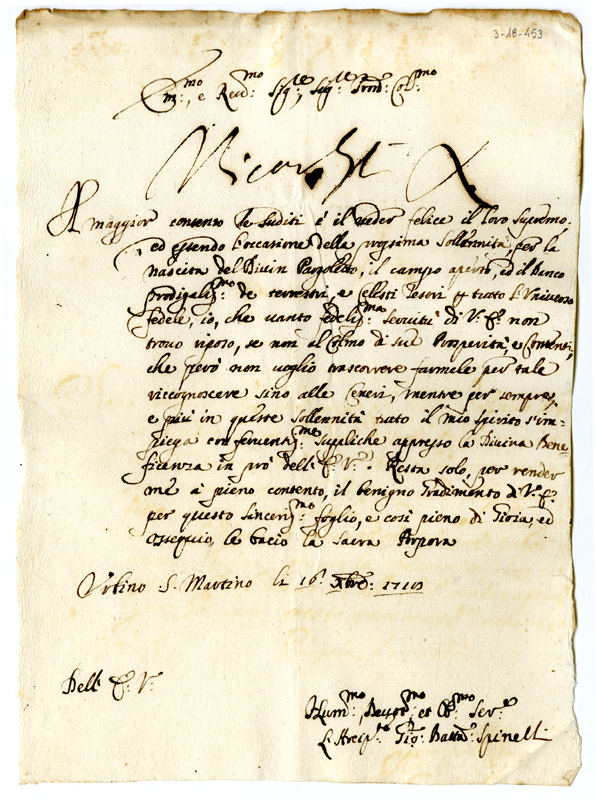 3-18-453
Em:mo, e Reud:mo Sig:re, Sig:re Prōn: Col:mo
Al maggior contento de Suditi è il veder felice il loro Supremo.
ed essendo l'occasione della prossima Sollennità, per la
nascita del Divin Pargoletto, il campo aperto, ed il Banco
prodigaliss:mo de terrestri, e Celesti Tesori tutto l'Universo
fedele, io, che vanto fedeliss:ma servitù di V: E: non
trovo riposo, se non al Colmo di sue Prosperità, e Contenti,
che però non voglio trascorrere farmele per tale
riccognoscere sino alle Ceneri, mentre per sempre,
e più in queste sollennità tutto il mio spirito s'im=
piega con ferventiss:me suppliche appresso la Divina Bene=
ficenza in prò dell' E: V: Resta solo, per render
me à pieno contento, il benigno Gradimento di V: E:
per questo sinceriss:mo foglio, e così pieno di Gioia, ed
ossequio, le bacio la Sacra Porpora
Urbino S. Martino li 16: Xbre:
Dell' E: V:
Hum:mo, Devot:mo et Ob:mo Ser:e
L'Arcip:te Gio: Batt:a Spinelli